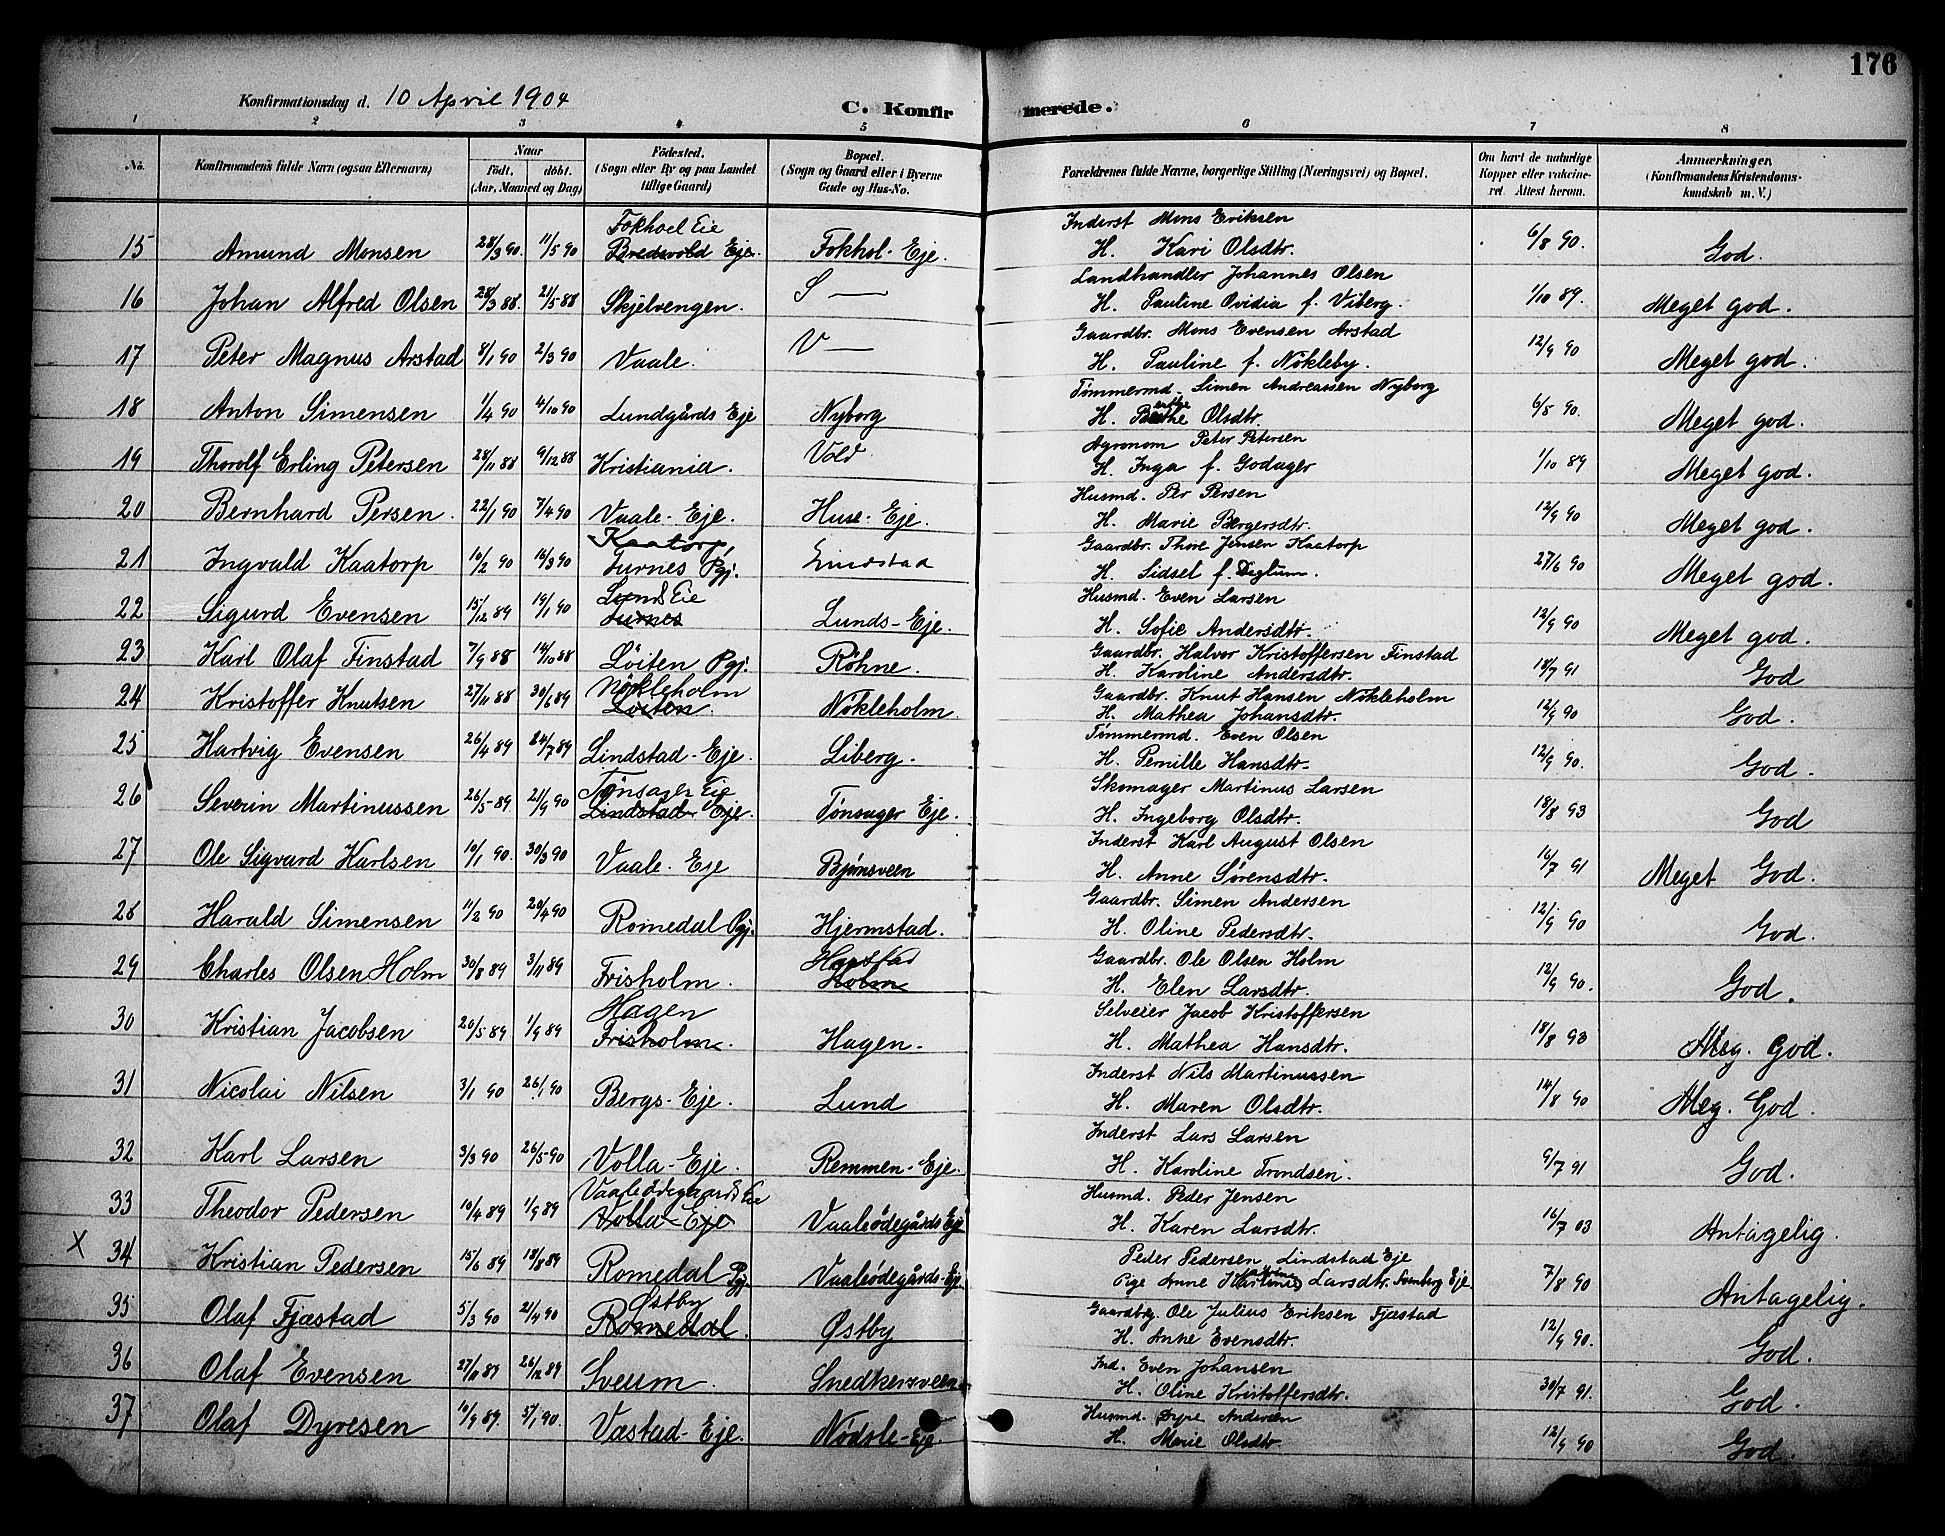 176
Konfirmationsdag d. 10 April 1904
C. Konfirmerede.
1 2 3 4 5 6 7 8
No. Konfirmandens fulde Navn (ogsaa Efternavn) Naar Født, døbt. (Aar, Maaned og Dag) Fødested. (Sogn eller By og paa Landet tillige Gaard) Bopæl. (Sogn og Gaard eller i Byerne Gade og Hus-No. Forældrenes fulde Navne, borgerlige Stilling (Næringsvei) og Bopæl. Om havt de naturlige Kopper eller vakcineret. Attest herom. Anmærkninger. (Konfirmandens Kristendomskundskab m. V.)
Fokhoel Eie Inderst Mons Eriksen
15 Amund Monsen 28/3 90. 11/5 90 Bredsvold Eje. Fokhol-Eje. H. Kari Olsdtr. 6/8 90. God.
Landhandler Johannes Olsen
16 Johan Alfred Olsen 28/3 88. 21/5 88 Skjelvengen. S — H. Pauline Ovidia f. Viberg. 1/10 89. Meget god.
Gaardbr. Mons Evensen Arstad
17 Peter Magnus Arstad 8/1 90 2/3 90 Vaale. V — H. Pauline f. Nökleby. 12/9 90 Meget god.
Tømmermd. Simen Andreassen Nyborg
18 Anton Simensen 1/4 90 4/10 90 Lundgårds Eje Nyborg H. Olsdtr. 6/8 90. Meget god.
Agronom Peter Petersen
19 Thorolf Erling Petersen 28/11 88 9/12 88 Kristiania. Vold. H. Inga f. Godager 1/10 89 Meget god.
Husmd. Per Persen
20 Bernhard Persen. 22/1 90 7/4 90 Vaale-Eje. Huse-Eje. H. Marie Bergersdtr. 12/9 90 Meget god.
Kaatorp, Gaardbr. Thore Jensen Kaatorp
21 Ingvald Kaatorp 10/2 90 16/3 90 Furnes Pgj. Lindstad H. Sidsel f. Deglum. 27/6 90 Meget god.
Lunds Eie Husmd. Even Larsen
22 Sigurd Evensen 15/12 89 19/1 90 Furnes Lunds-Eje. H. Sofie Andersdtr. 12/9 90 Meget god.
Gaardbr. Halvor Kristoffersen Finstad
23 Karl Olaf Finstad 7/9 88 14/10 88 Löiten Pgj. Röhne. H. Karoline Andersdtr. 18/7 91 God
Nökleholm Gaardbr. Knut Hansen Nökleholm
24 Kristoffer Knutsen 27/11 88 30/6 89 Löiten. Nökleholm. H. Mathea Johansdtr. 12/9 90 God.
Tømmermd. Even Olsen
25 Hartvig Evensen 26/4 89 24/7 89 Lindstad-Eje. Liberg. H. Pernille Hansdtr. 12/9 90. God.
Tønsager Eie Skomager Martinus Larsen
26 Severin Martinussen 26/5-89 21/9 90 Lindstad Eje. Tønsager Eje. H. Ingeborg Olsdtr. 18/8 93 God
Inderst Karl August Olsen
27 Ole Sigvard Karlsen 10/1 90. 30/3 90 Vaale-Eje Bjørnsveen H. Anne Sørensdtr. 16/7 91 Meget God.
Gaardbr. Simen Andersen
28 Harald Simensen 11/2 90 20/4 90 Romedal Pgj. Hjermstad. H. Oline Pedersdtr. 12/9 90 God.
Gaardbr. Ole Olsen Holm
29 Charles Olsen Holm 30/8 89 3/11 89 Frisholm. Holm H. Elen Larsdtr. 12/9 90. God.
Hagen Selveier Jacob Kristoffersen
30 Kristian Jacobsen 20/5 89 1/9 89 Frisholm. Hagen. H. Mathea Hansdtr. 18/8 93 Meg. God.
Inderst Nils Martinussen
31 Nicolai Nilsen 3/1 90 26/1 90 Bergs-Eje. Lund H. Maren Olsdtr. 14/8 90 Meg. God.
Inderst Lars Larsen
32 Karl Larsen 3/3 90 26/5-90 Volla-Eje. Remmen-Eje. H. Karoline Trondsen. 9/7 91 God.
Vaaleødegaards Eie Husmd. Peder Jensen
33 Theodor Pedersen 10/4 89 1/9 89 Volla-Eje Vaaleødegårds Eje H. Karen Larsdtr. 16/7 03 Antagelig.
Peder Pedersen Lindstad Eje
X 34 Kristian Pedersen 15/6 89 18/8 89 Romedal Pgj. Vaaleødegårds-Eje. Pige Anne Larsdtr. Svenberg Eje. 7/8 90 Antagelig.
Østby Gaardbrg. Ole Julius Eriksen Fjæstad
35 Olaf Fjæstad 5/3 90 21/4 90 Romedal. Østby H. Anne Evensdtr. 12/9 90. God.
Ind. Even Johansen
36 Olaf Evensen 27/11 89 26/12 89 Sveum. Snedkersveen H. Oline Kristoffersdtr. 30/7 91. God.
Husmd. Dyre Andersen
37 Olaf Dyresen 10/9 89. 5/1 90. Væstad-Eje. Nödsle-Eje. H. Marie Olsdtr. 12/9 90 God.